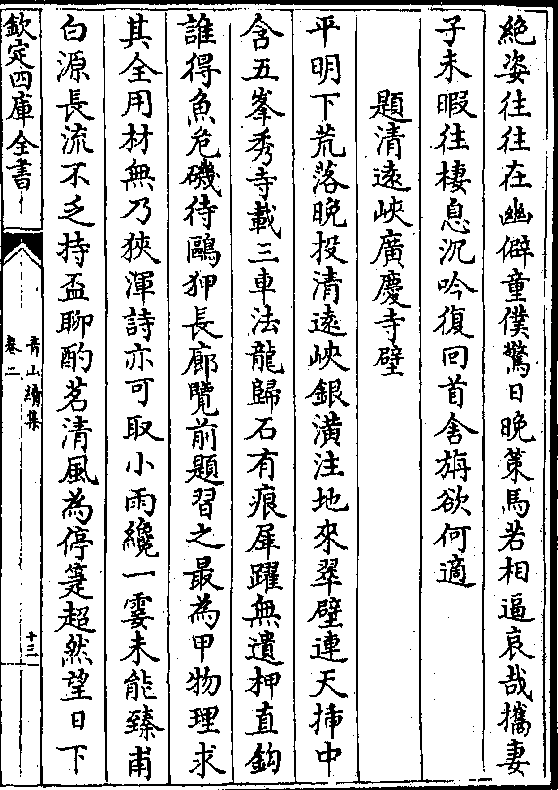 絶姿往往在幽僻童僕驚日晩策馬若相逼哀哉攜妻
子未暇往棲息沉吟復回首舍旃欲何適
題清遠峽廣慶寺壁
平明下荒落晩投清遠峽銀潢注地來翠壁連天揷中
含五峯秀寺載三車法龍歸石有痕犀躍無遺柙直鈎
誰得魚危磯待鷗狎長廊覽前題習之最為甲物理求
其全用材無乃狹渾詩亦可取小雨纔一霎未能臻甫
白源長流不乏持盃聊酌茗清風為停箑超然望日下
欽定四庫全書
青山續集
卷二
十三